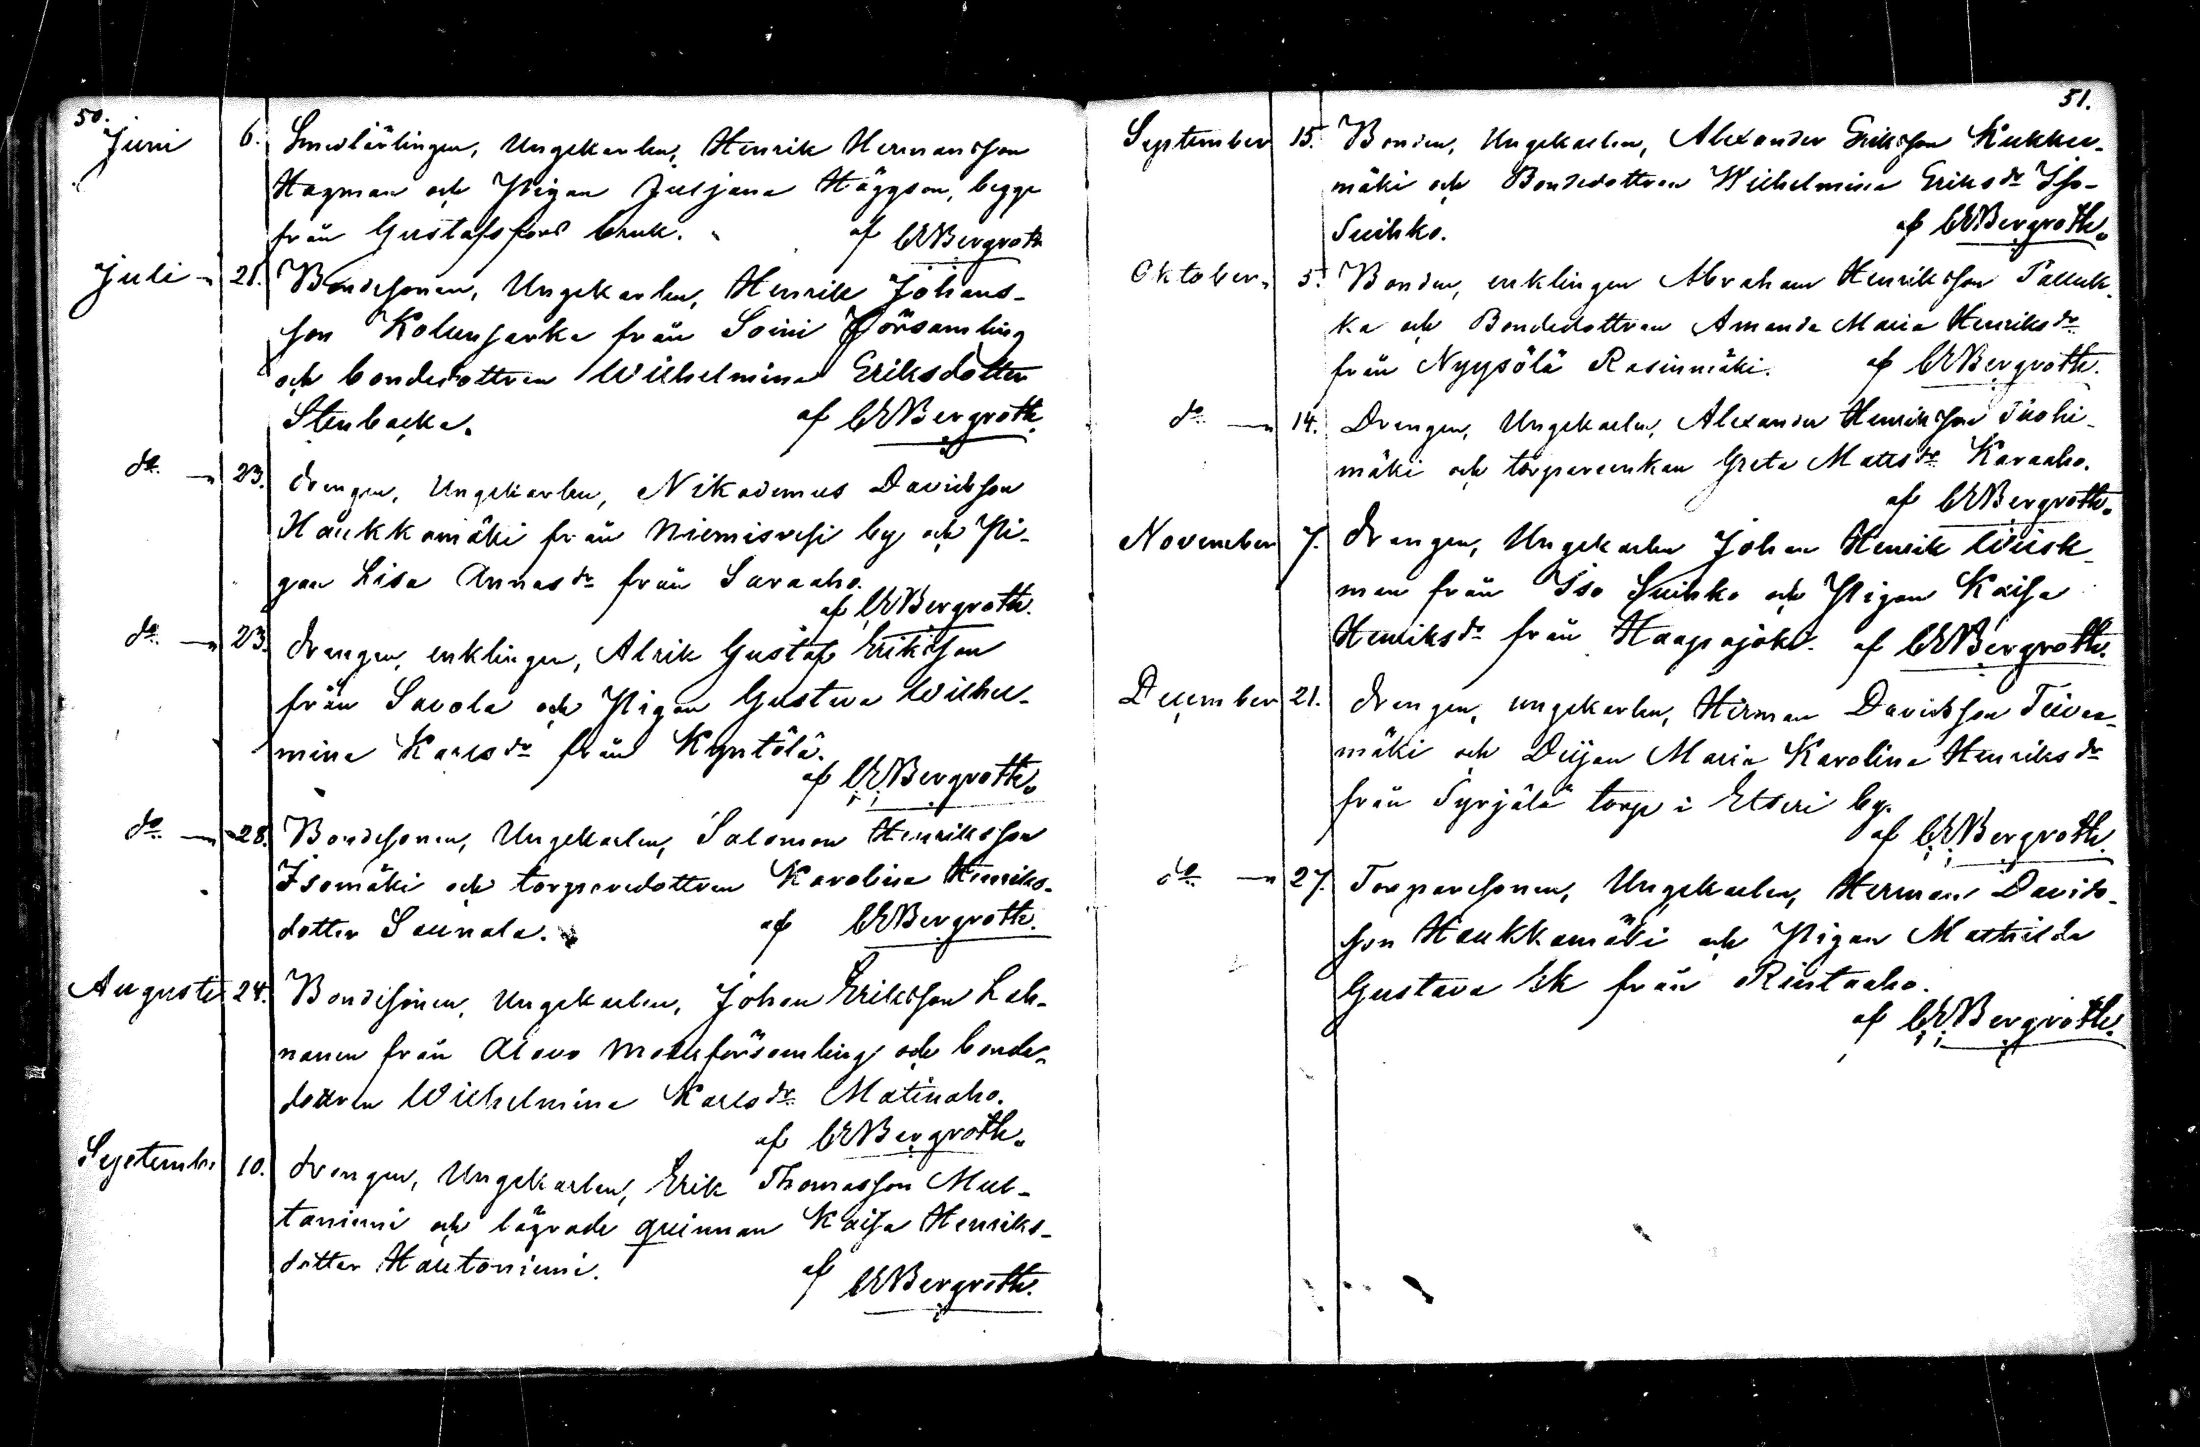 50.
Juni 6. Smedlärlingen, Ungekarlen, Henrik Hermansson
Hagman och Pigan Juljana Häggson, begge
från Gustafsfors bruk. af CEBergroth
Juli 21. Bondesonen, Ungekarlen, Henrik Johans-
son Kolunsarka från Soini Församling
och bondedottren Wilhelmina Eriksdotter
Stenbacka. af CEBergroth
do 23. Drengen, Ungekarlen, Nikodemus Davidsson
Haukkamäki från Niemisvesi by och Pi-
gan Lisa Annasdr från Saraaho.
af CEBergroth.
do 23. Drengen, enklingen, Alrik Gustaf Eriksson
från Savola och Pigan Gustava Wilhel-
mina Karlsdr från Kyntölä.
af CEBergroth.
do 28. Bondesonen, Ungekarlen, Salomon Henriksson
Isomäki och torparedottren Karolina Henriks-
dotter Saunala. af CEBergroth.
Augusti 24. Bondesonen, Ungekarlen, Johan Eriksson Leh-
nanen från Alavo Moderförsamling och bonde-
dottren Wilhelmina Karlsdr Matinaho.
af CEBergroth.
September 10. Drengen, Ungekarlen, Erik Thomasson Mul-
taniemi och lägrade quinnan Kaisa Henriks-
dotter Hautaniemi. af CEBergroth.
51.
September 15. Bonden, Ungekarlen, Alexander Eriksson Kukku-
mäki och Bondedottren Wilhelmina Eriksdr Iso-
Suihko. af CEBergroth.
Oktober 5. Bonden, enklingen Abraham Henriksson Paluk-
ka och Bondedottren Amanda Maria Henriksdr
från Nyysölä Rasinmäki. af CEBergroth.
do 14. Drengen, Ungekarlen, Alexander Henriksson Tuohi-
mäki och torpareenkan Greta Mattsdr Karaaho.
af CEBergroth.
November 7. Drengen, Ungekarlen Johan Henrik Wiik-
man från Iso Suihko och Pigan Kaisa
Henriksdr från Haapajoki. af CEBergroth.
December 21. Drengen, ungekarlen, Herman Davidsson Teivas-
mäki och Deijan Maria Karolina Henriksdr
från Syrjälä torp i Etseri by.
af CEBergroth.
do 27. Torparesonen, Ungekarlen, Herman Davids-
son Haukkamäki och Pigan Mathilda
Gustava Ek från Rintaaho.
af CEBergroth.